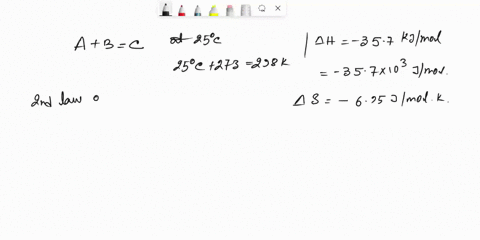 A + B = C at 25°C
25°C + 273 = 298 K
2nd law o
ΔH = -35.7 KJ/mol
= -35.7 × 10³ J/mol.
ΔS = - 6.95 J/mol. K.